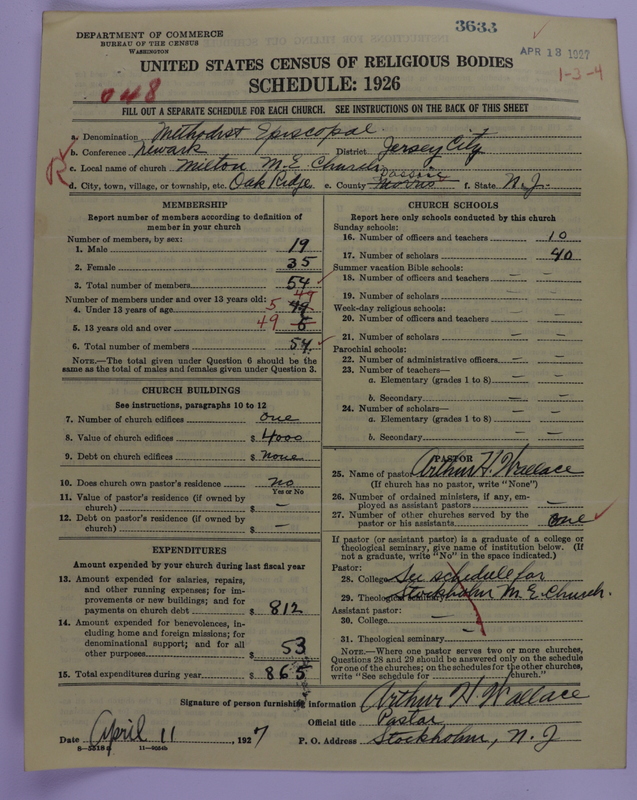 3633
DEPARTMENT OF COMMERCE
BUREAU OF THE CENSUS
WASHINGTON
APR 18 1927
UNITED STATES CENSUS OF RELIGIOUS BODIES
1-3-4
SCHEDULE: 1926
048
FILL OUT A SEPARATE SCHEDULE FOR EACH CHURCH. SEE INSTRUCTIONS ON THE BACK OF THIS SHEET
a. Denomination Methodist Episcopal
b. Conference Newark District Jersey City
c. Local name of church Milton M.E. Church
R
d. City, town, village, or township, etc. Oak Ridge e. County Morris Passaic f. State N.J.
MEMBERSHIP
Report number of members according to definition of
member in your church
Number of members, by sex:
1. Male 19
2. Female 35
3. Total number of members 54
Number of members under and over 13 years old: 49
4. Under 13 years of age 5 49
5. 13 years old and over 49 5
6. Total number of members 54
NOTE.—The total given under Question 6 should be the
same as the total of males and females given under Question 3.
CHURCH BUILDINGS
See instructions, paragraphs 10 to 12
7. Number of church edifices one
8. Value of church edifices $ 4000
9. Debt on church edifices $ None
10. Does church own pastor's residence No
Yes or No
11. Value of pastor's residence (if owned by
church) $ —
12. Debt on pastor's residence (if owned by
church) $ —
EXPENDITURES
Amount expended by your church during last fiscal year
13. Amount expended for salaries, repairs,
and other running expenses; for im-
provements or new buildings; and for
payments on church debt $ 812
14. Amount expended for benevolences, in-
cluding home and foreign missions; for
denominational support; and for all
other purposes $ 53
15. Total expenditures during year $ 865
CHURCH SCHOOLS
Report here only schools conducted by this church
Sunday schools:
16. Number of officers and teachers 10
17. Number of scholars 40
Summer vacation Bible schools:
18. Number of officers and teachers —
19. Number of scholars —
Week-day religious schools:
20. Number of officers and teachers —
21. Number of scholars —
Parochial schools:
22. Number of administrative officers —
23. Number of teachers—
a. Elementary (grades 1 to 8) —
b. Secondary —
24. Number of scholars—
a. Elementary (grades 1 to 8) —
b. Secondary —
PASTOR
25. Name of pastor Arthur H. Wallace
(If church has no pastor, write "None")
26. Number of ordained ministers, if any, em-
ployed as assistant pastors —
27. Number of other churches served by the
pastor or his assistants one
If pastor (or assistant pastor) is a graduate of a college or
theological seminary, give name of institution below. (If
not a graduate, write "No" in the space indicated.)
Pastor:
28. College See schedule for
29. Theological seminary Stockholm M.E. Church.
Assistant pastor:
30. College —
31. Theological seminary —
NOTE.—Where one pastor serves two or more churches,
Questions 28 and 29 should be answered only on the schedule
for one of the churches; on the schedules for the other churches,
write "See schedule for church."
Signature of person furnishing information Arthur H. Wallace
Official title Pastor
Date April 11, 1927 P. O. Address Stockholm, N. J